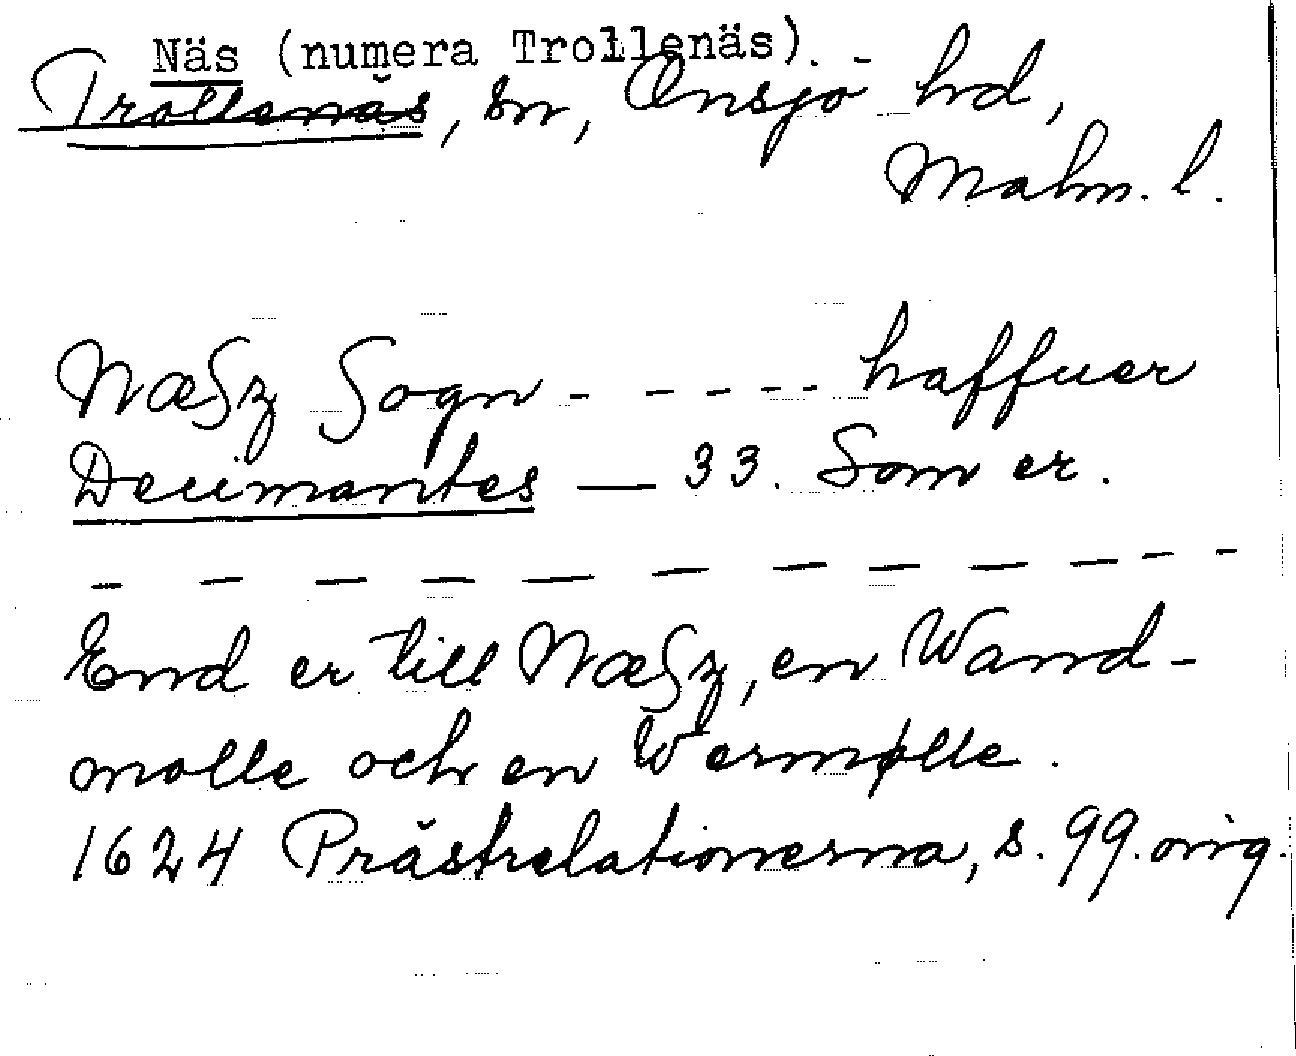 Näs (numera Trollenäs).
Trollenäs, sn, Onsjö hd,
Malm. l.
Næsz Sogn - - - - - haffuer
Decimantes — 33. Som er.
- - - - - - - - - - - -
End er till Næsz, en Wand-
mølle och en Wermølle.
1624 Prästrelationerna, s. 99. orig.